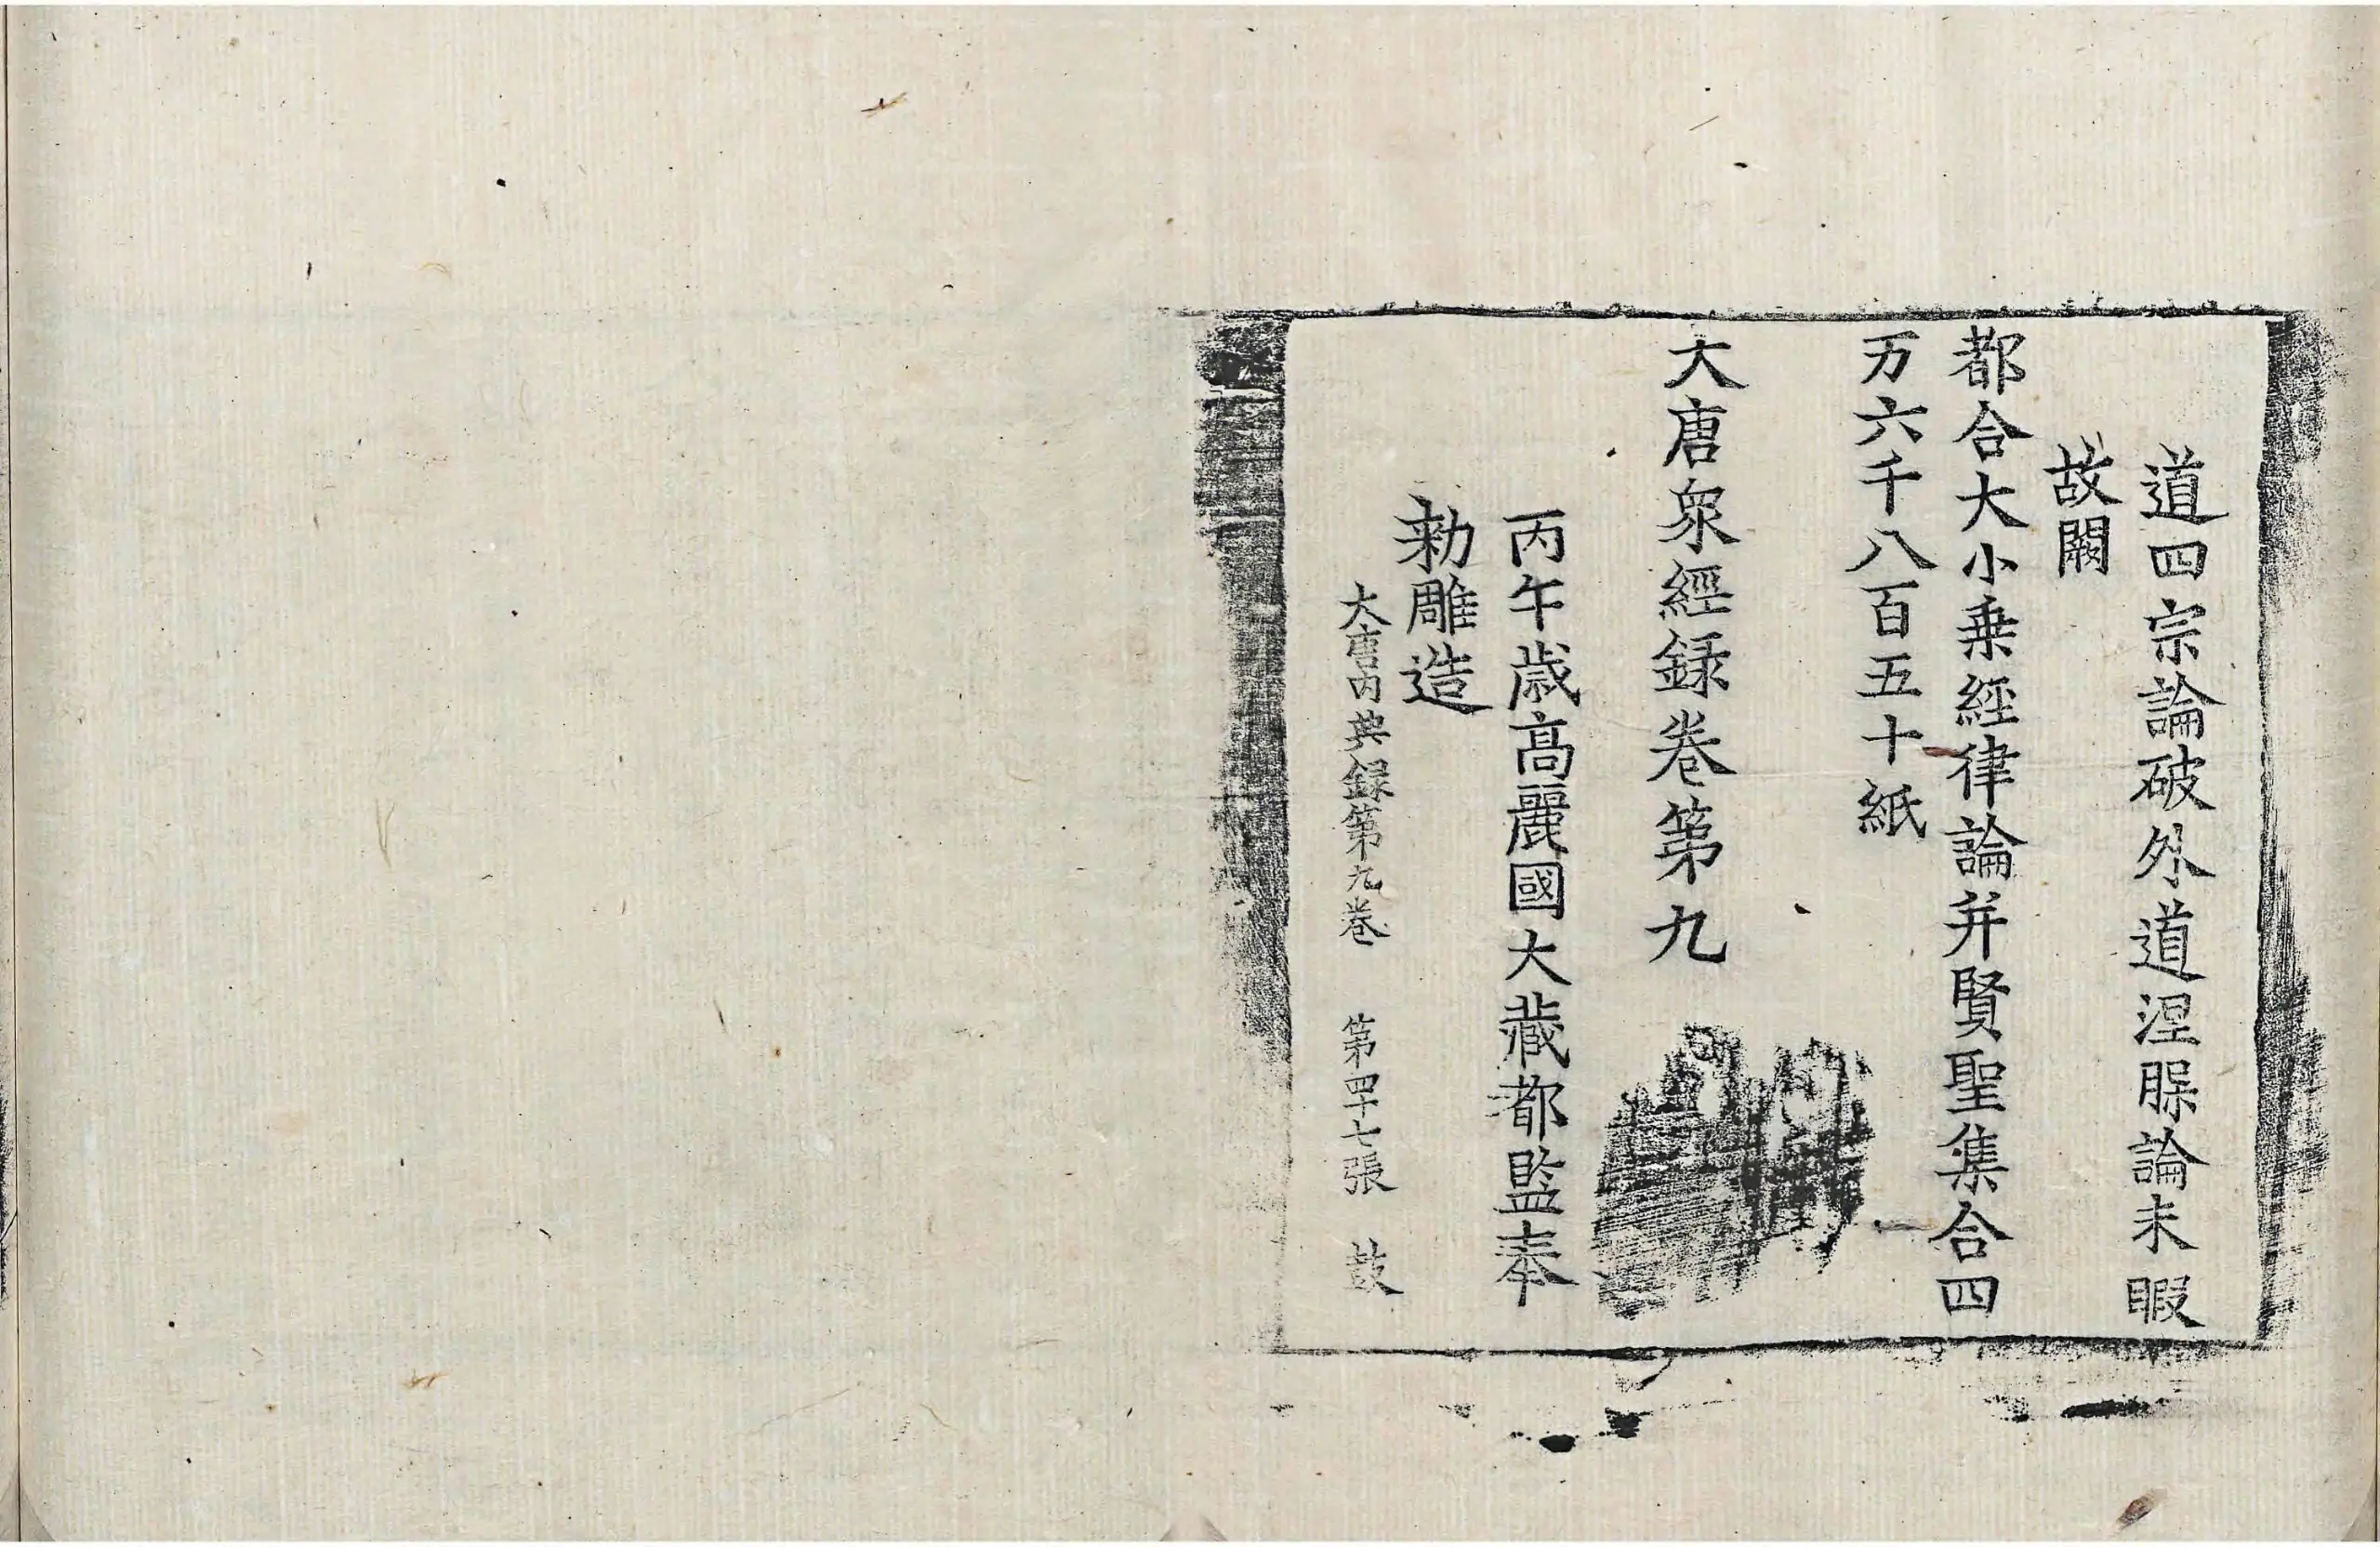 道四宗論破外道涅脲論未暇
故闕
都合大小乗經律論并賢聖集合四
万六千八百五十紙
大唐眾經録卷第九
丙午歳高麗國大藏都監奉
勅雕造
大唐内典録第九卷 第四十七張 鼓